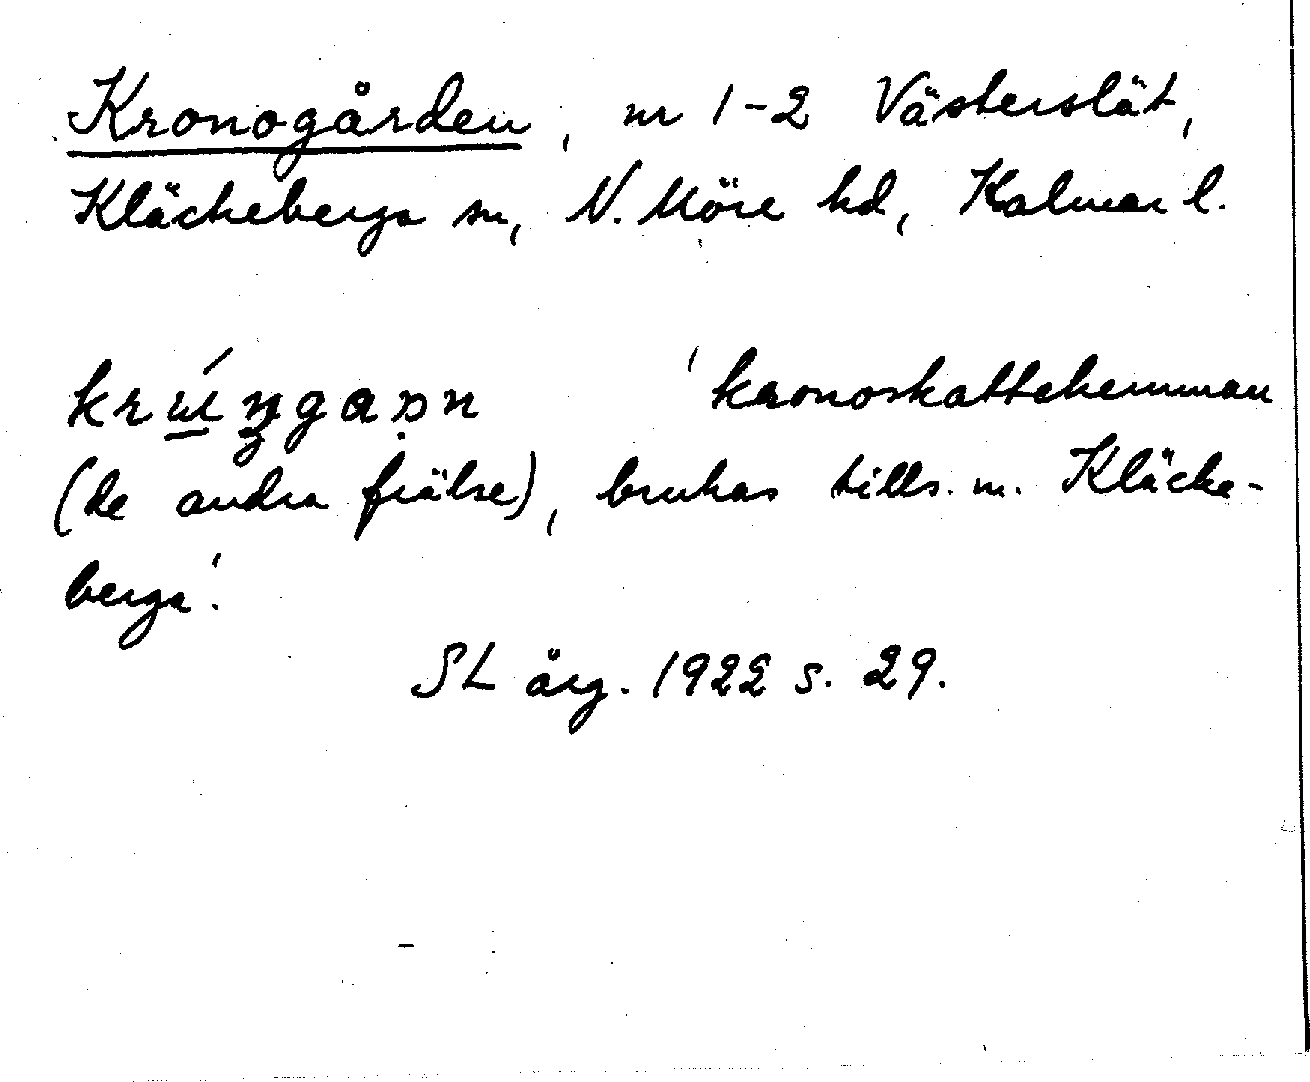 Kronogården, nr 1-2 Västerslät,
Kläckeberga sn, N. Möre hd, Kalmar l.
'kronoskattehemman
(de andra frälse), brukas tills. m. Kläcke-
berga'.
SL årg. 1922 s. 29.